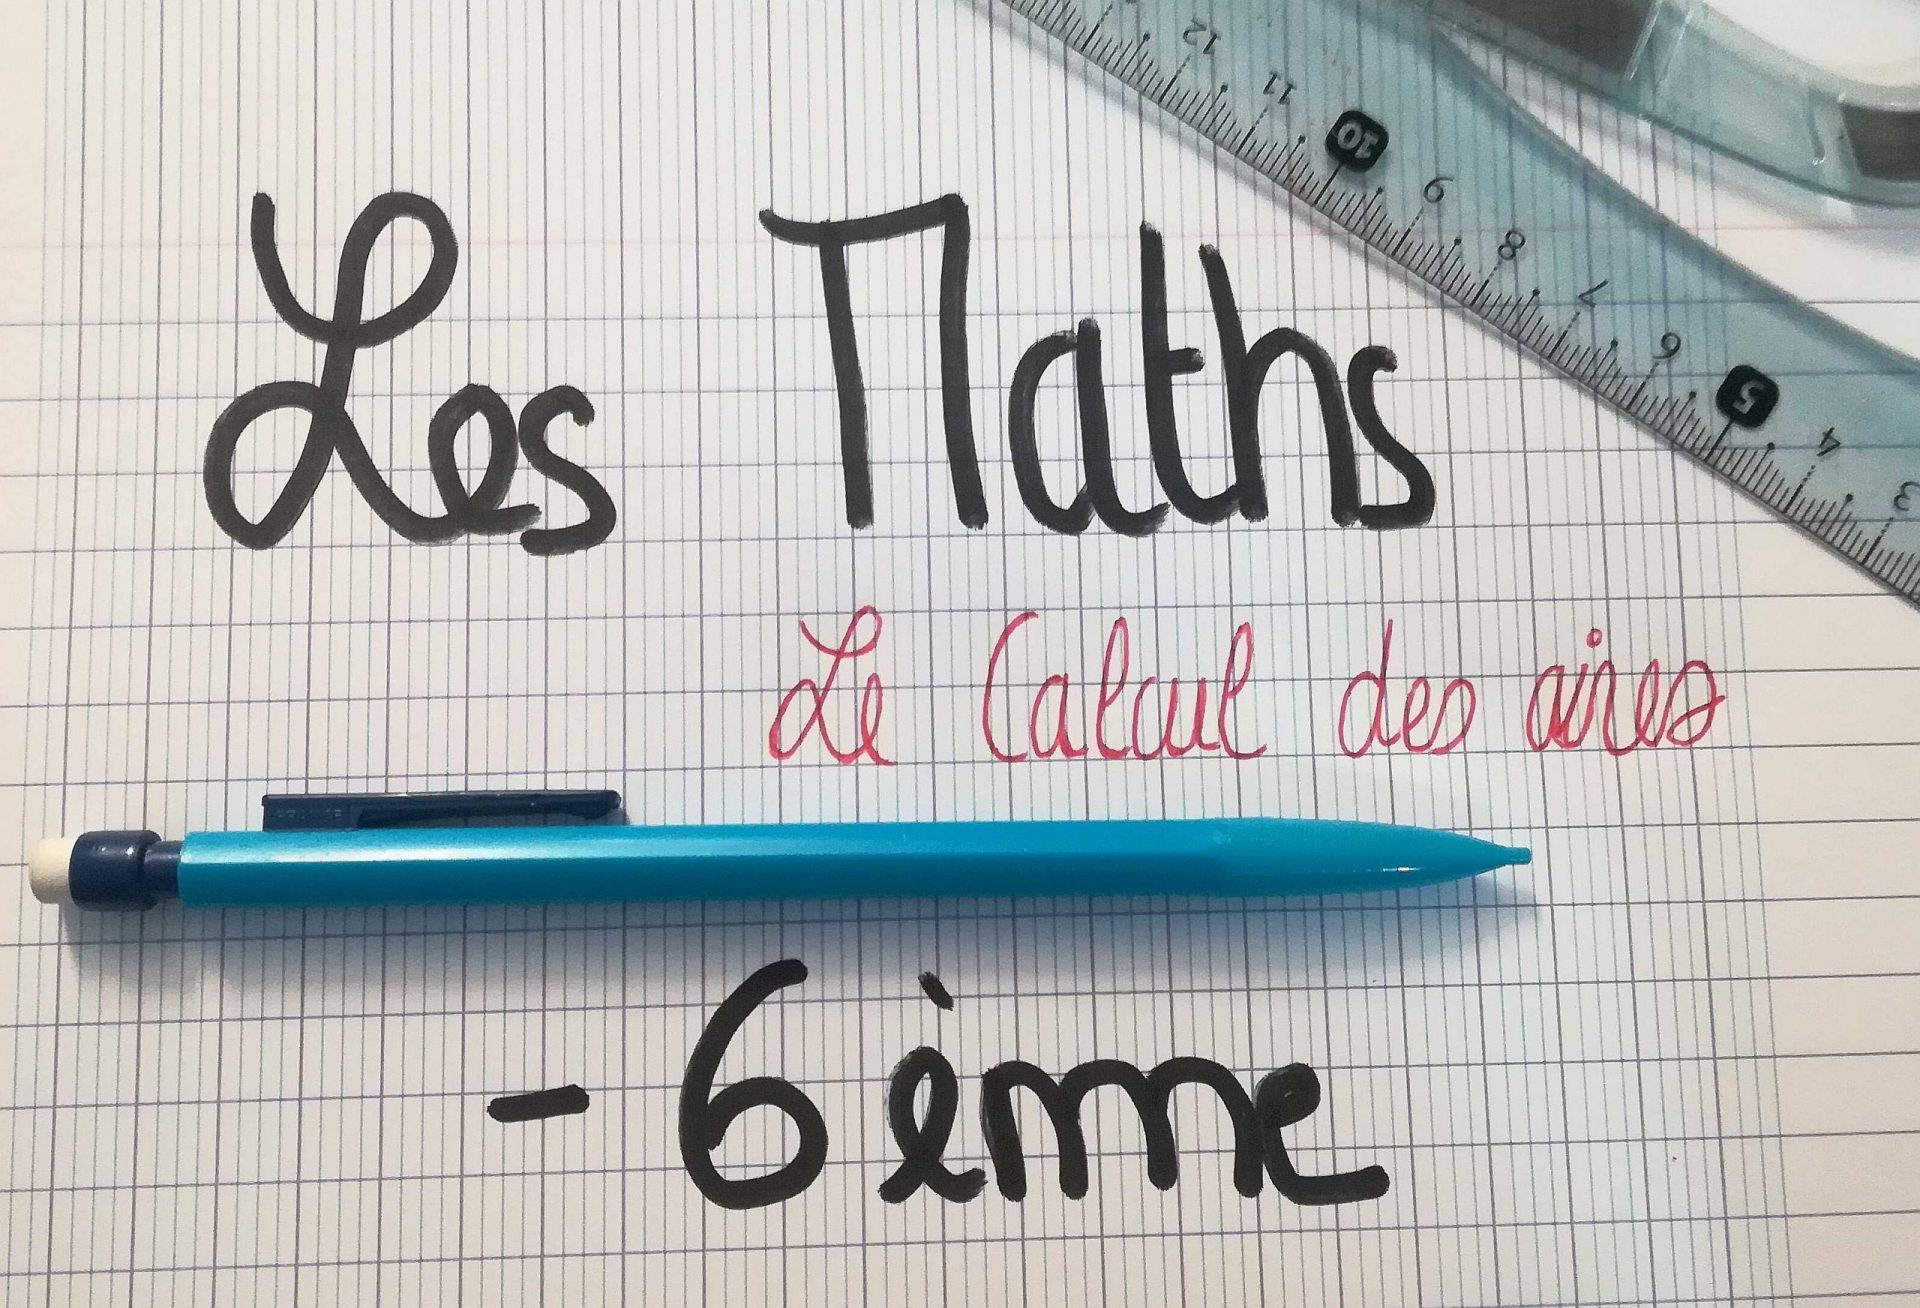 Les Maths
Le Calcul des aires
- 6ème
12 11 10 9 8 7 6 5 4 3